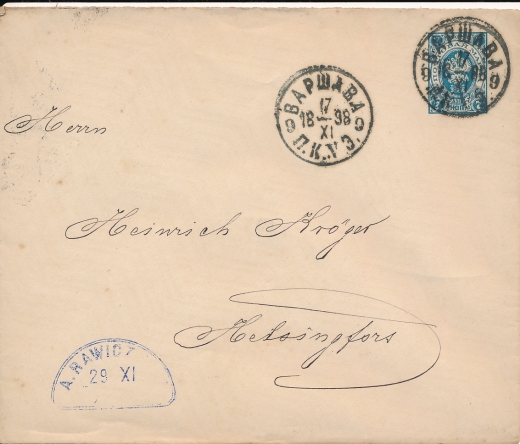 ВАРШАВА
17
18 98
XI
9 П.К.У.Э. 9
ВАРШАВА
Herrn
Heinrich Kröger
Helsingfors
A. RAWICZ
29 XI